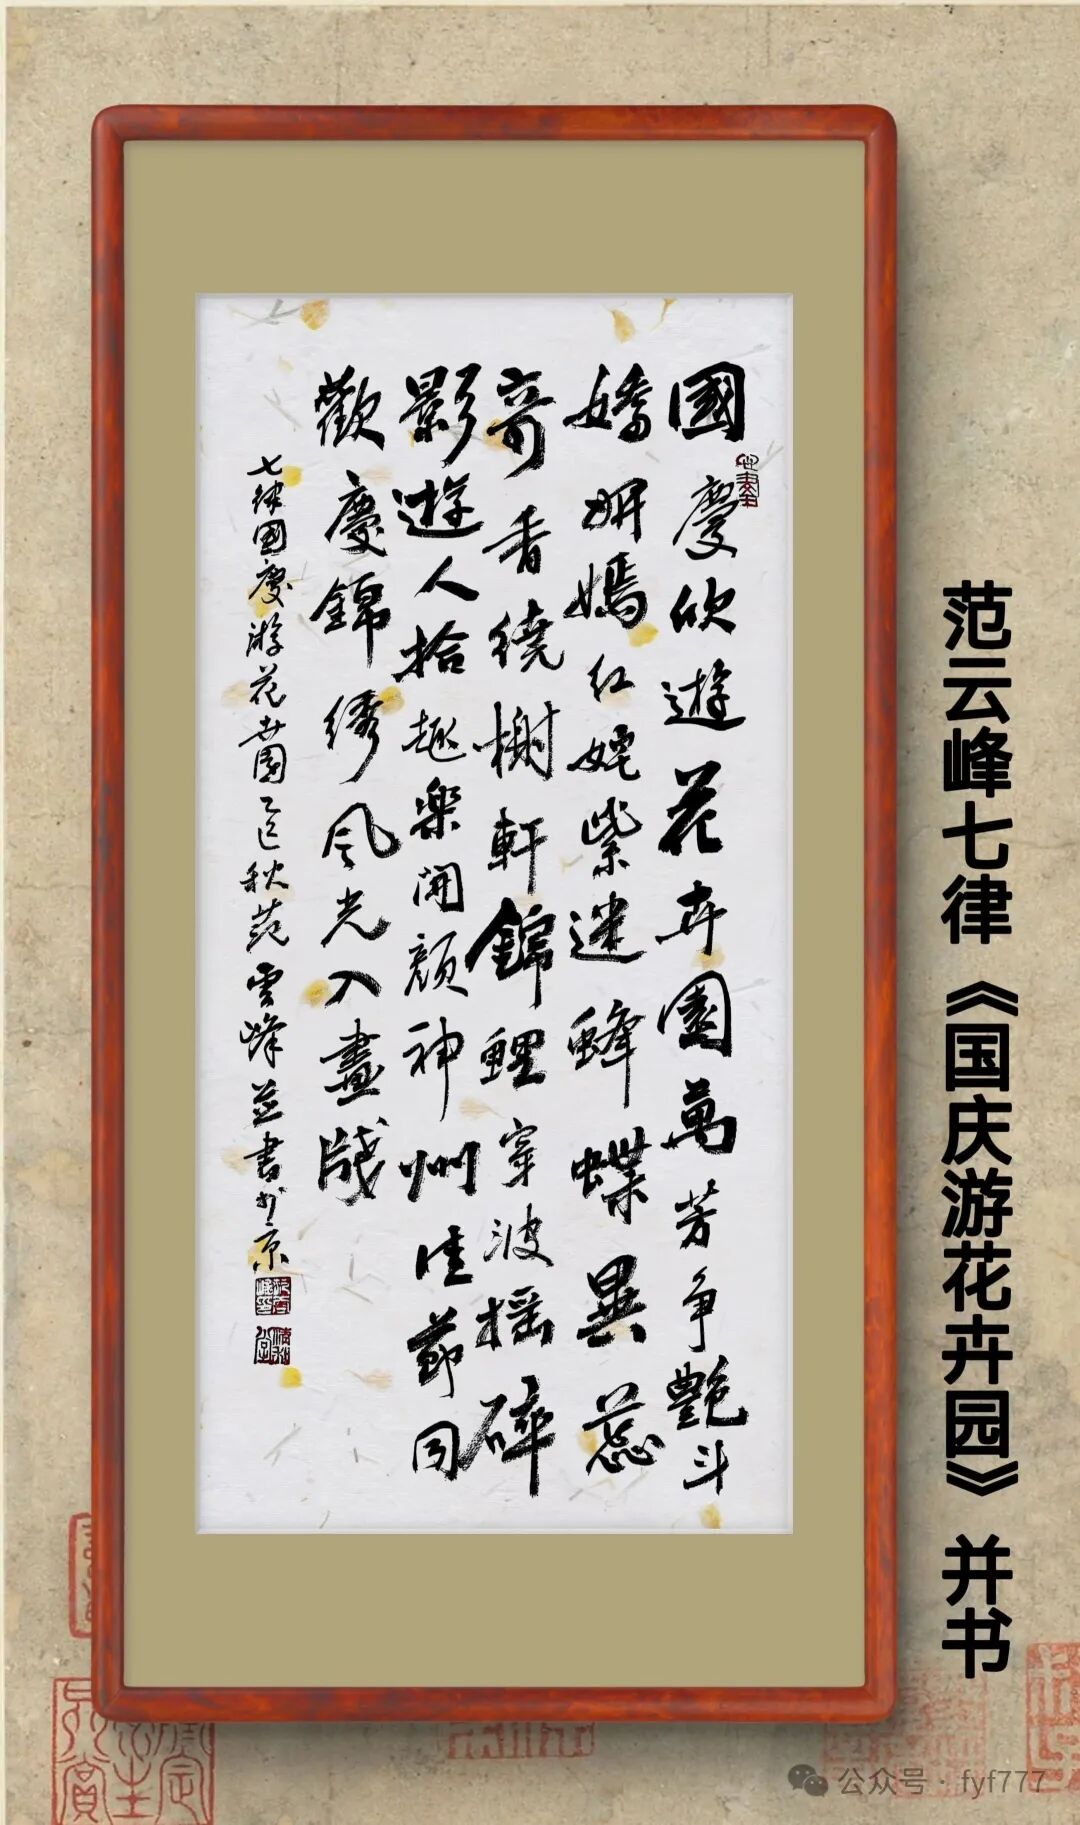 范云峰七律《国庆游花卉园》并书
國慶欣遊花卉園萬芳争艷斗
嬌妍嫣红姹紫迷蜂蝶異蕊
奇香绕榭軒錦鲤穿波摇碎
影遊人拾趣樂開颜神州佳節同
歡慶錦绣风光入畫牋
七律國慶游花卉園乙巳秋范雲峰並書於京
公众号 · fyf777